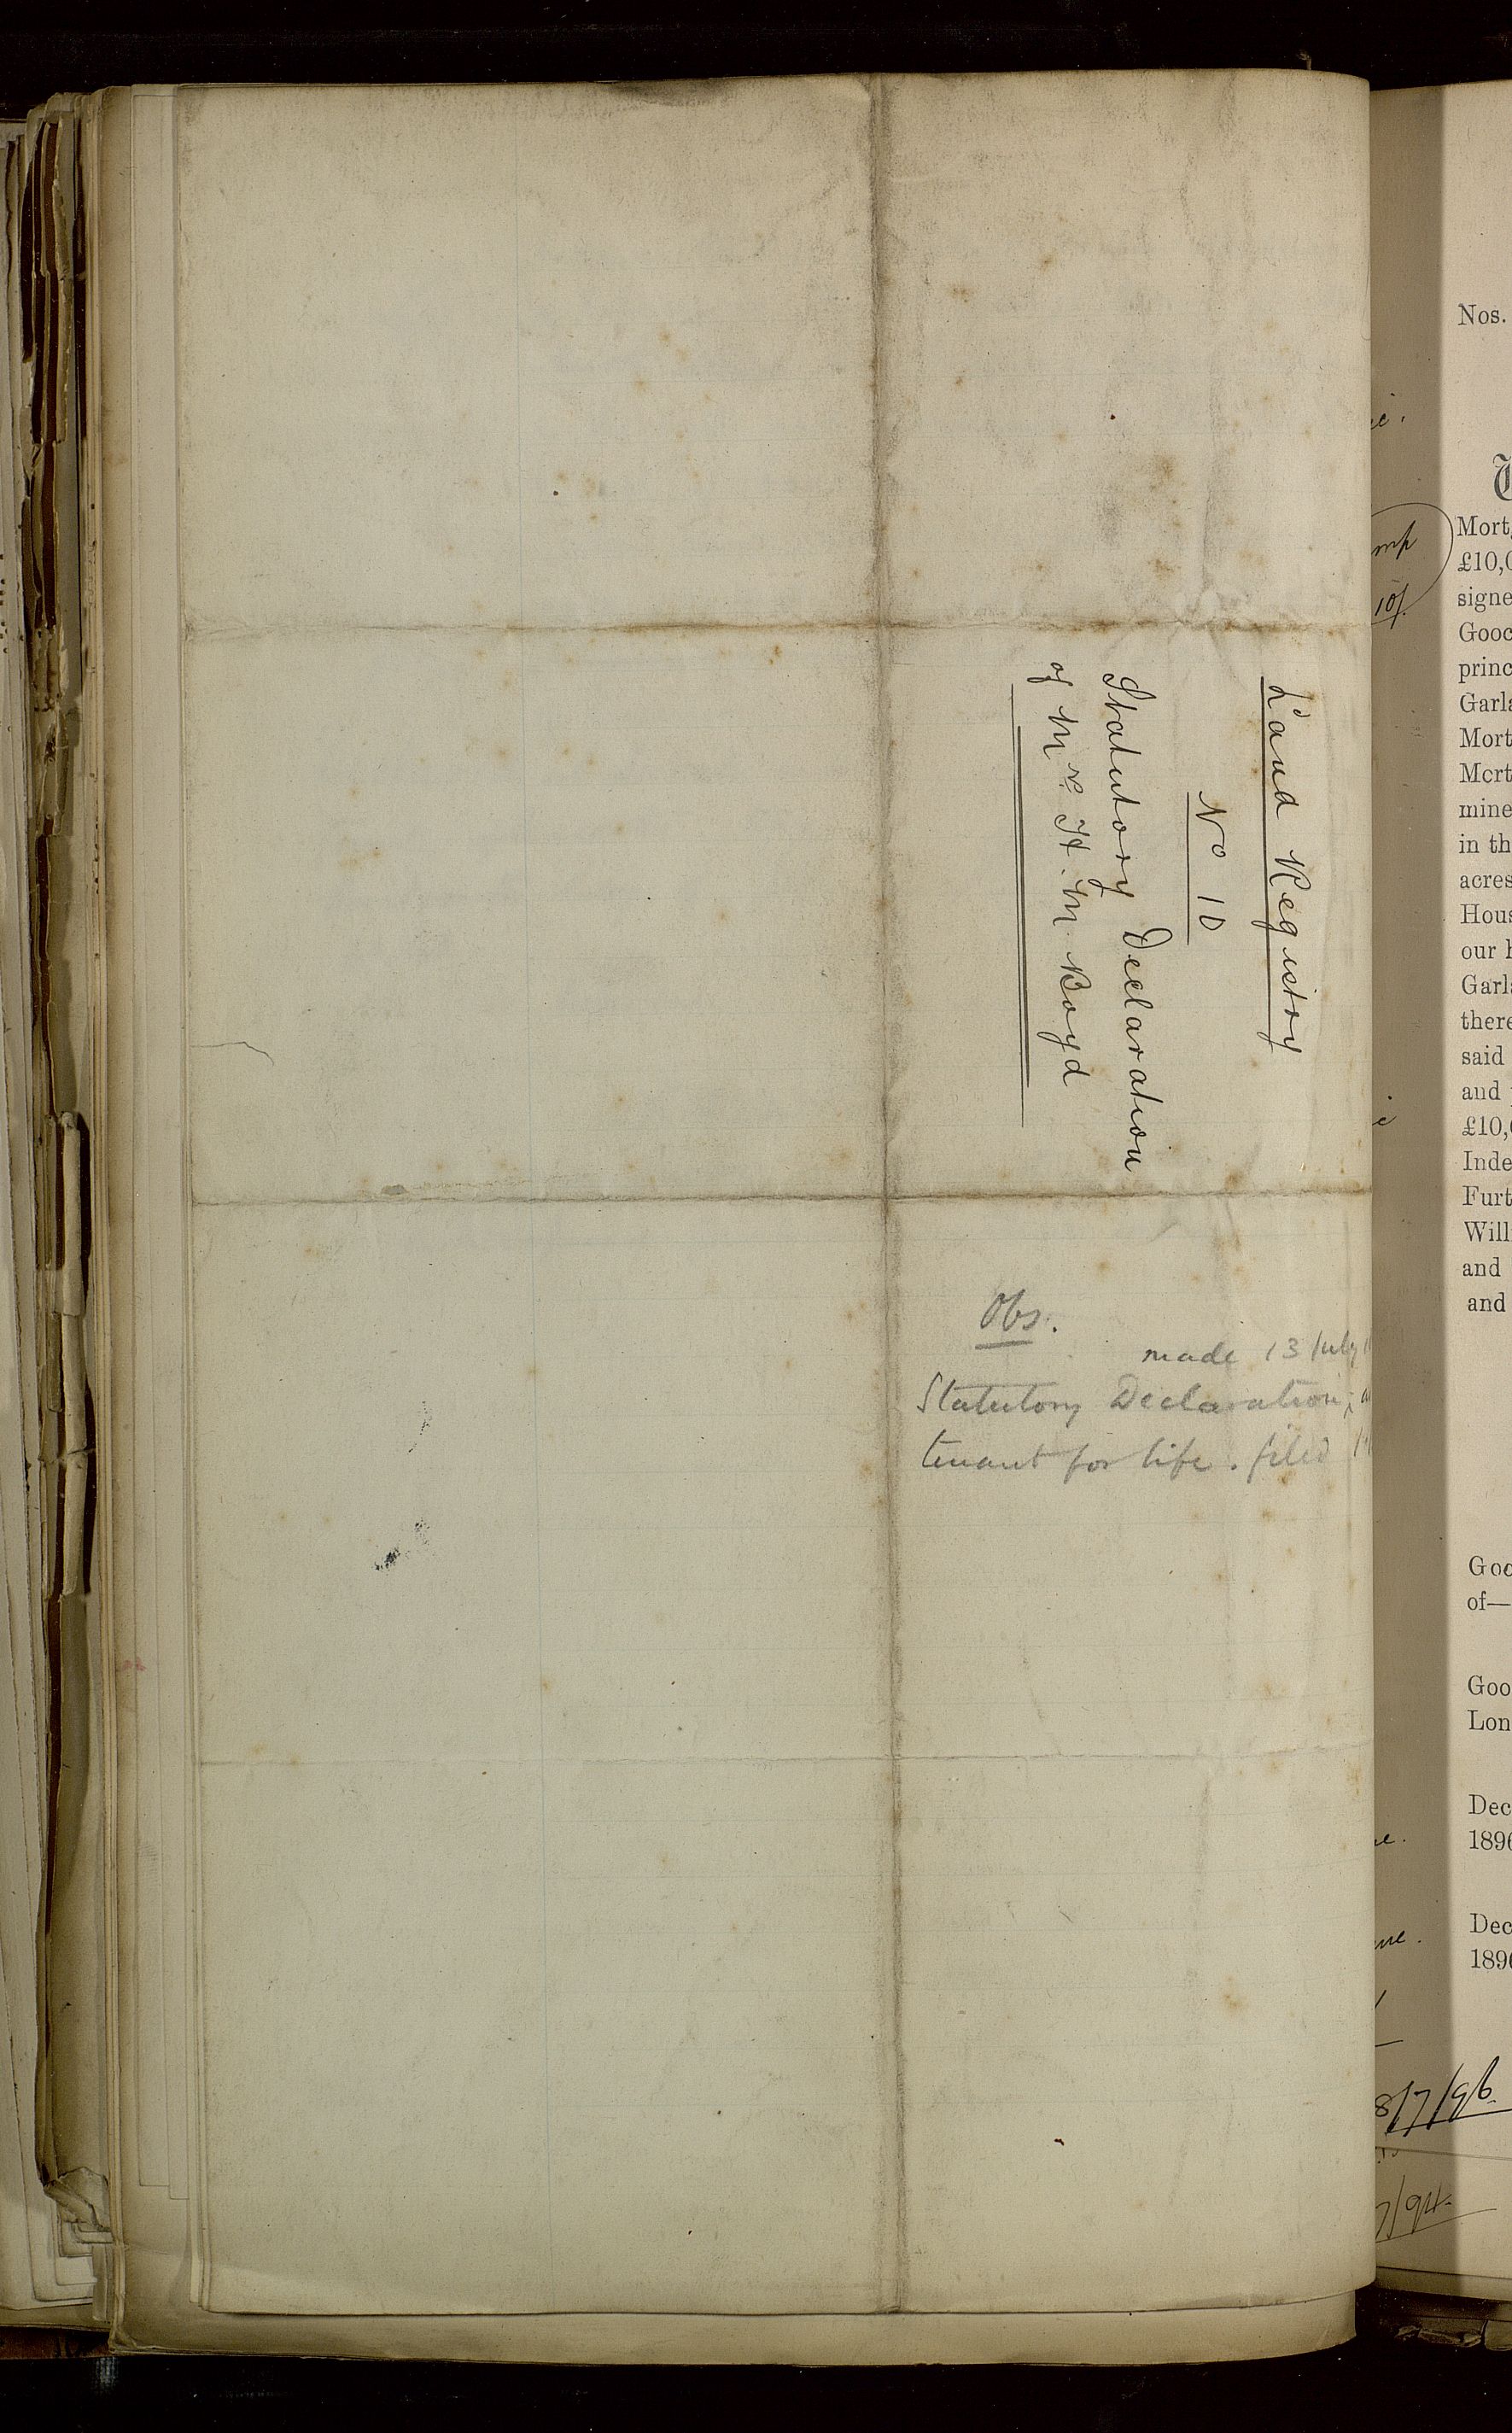 Land Registry
No 10
Statutory Declaration
of Mr. H. M Boyd
Obs.
made 13 July
Statutory Declaration
tenant for life. filed
Nos.
Mort
£10,0
signe
Gooc
princ
Garla
Mort
Mort
mine
in th
acres
Hous
our
Garla
there
said
and
£10,
Inde
Furt
Will
and
and
Goo
of—
Goo
Lon
Dec
1896
Dec
1896
8/7/96